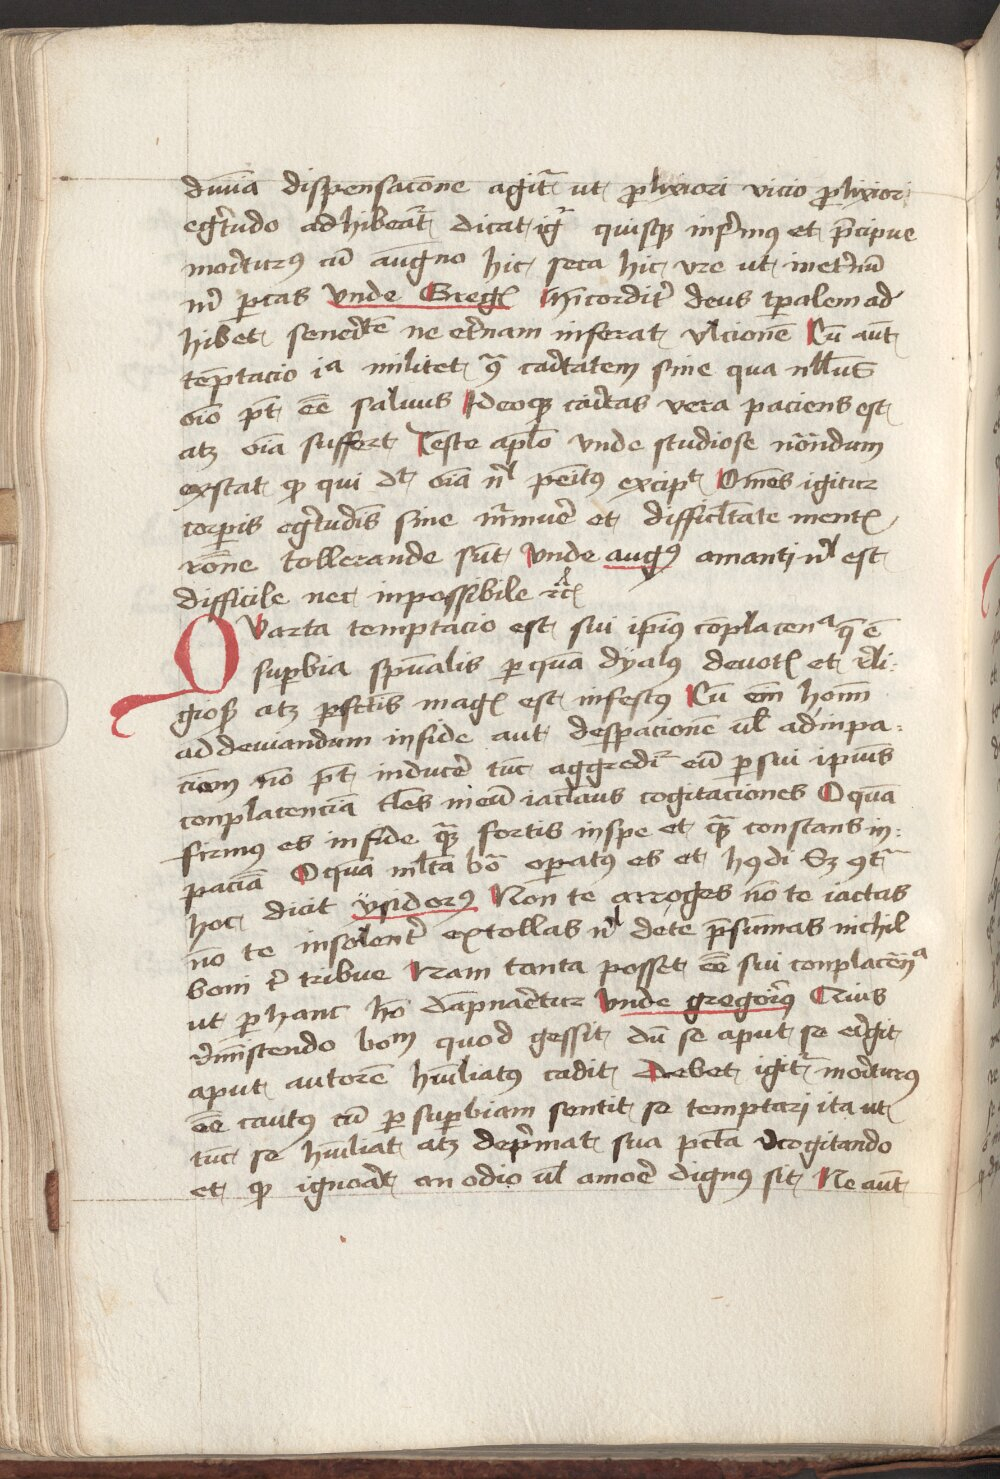 diuīa dispensacōne agit᷑ ut ꝓlixiori vicio ꝓlixior
egr̄tudo adhibeat᷑ Dicat igit᷑ quisqꝫ infirmꝰ et p̄cipue
moriturꝰ cū augͦno hic seca hic vre ut inet͛nū
m͛ ꝑcas Vnde Greg᷑ Mīcordit͛ deus tꝑalem ad
hibet seueritatē ne et͛nam inferat vlcionē Cū aut̄
temptacio iᵃ militet ꝯᵃ caritatem sine qua nllus
oīo pt̄ eē saluus Ideoqꝫ caritas vera paciens est
atqꝫ oīa suffert Teste apl̄o Vnde studiose nōndum
exstat ꝙ qui dt̄ oīa nˡ penitꝰ excipit Omēs igitur
corꝑis egr̄tudīes sine murmu͛e et difficultate ment᷑
rōne tollerande sūt Vnde augꝰ amanti nˡ est
difficile nec inpossibile rc̄᷑
QVarta temptacio est sui ip̄ius cōplacenᵃ q̄ ē
suꝑbia spūalis ꝑ quā dyalꝰ deuot᷑ et reli⸗
giosꝫ atqꝫ ꝑfectis mag᷑ est infestꝰ Cū em̄ hom̄
ad deuiandum in fide aut desꝑacionē ul̄ ad inpa⸗
ciam nō pt̄ inducere tūc aggredit᷑ eū ꝑ sui ipius
conplacenciā tles in eū iaculans cogitaciones O quā
firmꝰ es in fide qᵃꝫ fortis in spe et qᵃꝫ constans in⸗
paciā O quā mlta boͣ oꝑatꝰ es et hꝰdi Sꝫ ꝯtᵃ
hoc dicit ysiderꝰ Non te arroges nō te iactas
nō te insolent͛ extollas nˡ de te p̄sumas nichil
boni t͛ tribue Nam tanta posset eē sui conplacēnᵃ
ut ꝑ hanc hō dāpnaretur Vnde gregoriꝰ Ciuis
r͛mīstendo boᵐ quod gessit dū se aput se erigit
aput autorē hūiliatꝰ cadit Debet igit᷑ moriturꝰ
eē cautꝰ cū ꝑ suꝑbiam sentit se temptari ita ut
tūc se hūiliat atqꝫ deprimat sua pctā recogitando
et ꝙ ignorat an odio ul̄ amore dignꝰ sit Ne aut̄